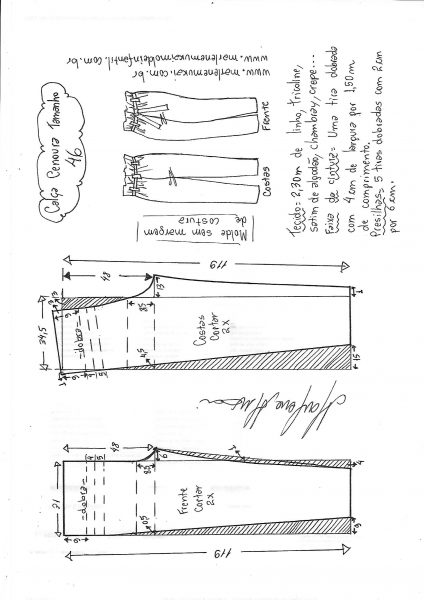 Calça Cenoura Tamanho
46
www.marlenemukai.com.br
www.marlenemukaimoldeinfantil.com.br
Frente
Costas
Molde sem margem
de costura
Tecido= 2,30m de linho, tricoline,
setim de algodão, chambray, crepe...
Faixa de cintura= Uma tira dobrada
com 4cm de largura por 1,50m
de comprimento.
Presilhas= 5 tiras dobradas com 2cm
por 6cm.
119
48
34,5
13
6
dobra
8,5
4,5
Costas
Cortar
2x
1
15
48
21
4
5
6
dobra
8,5
0,5
Frente
Cortar
2x
4
5
119